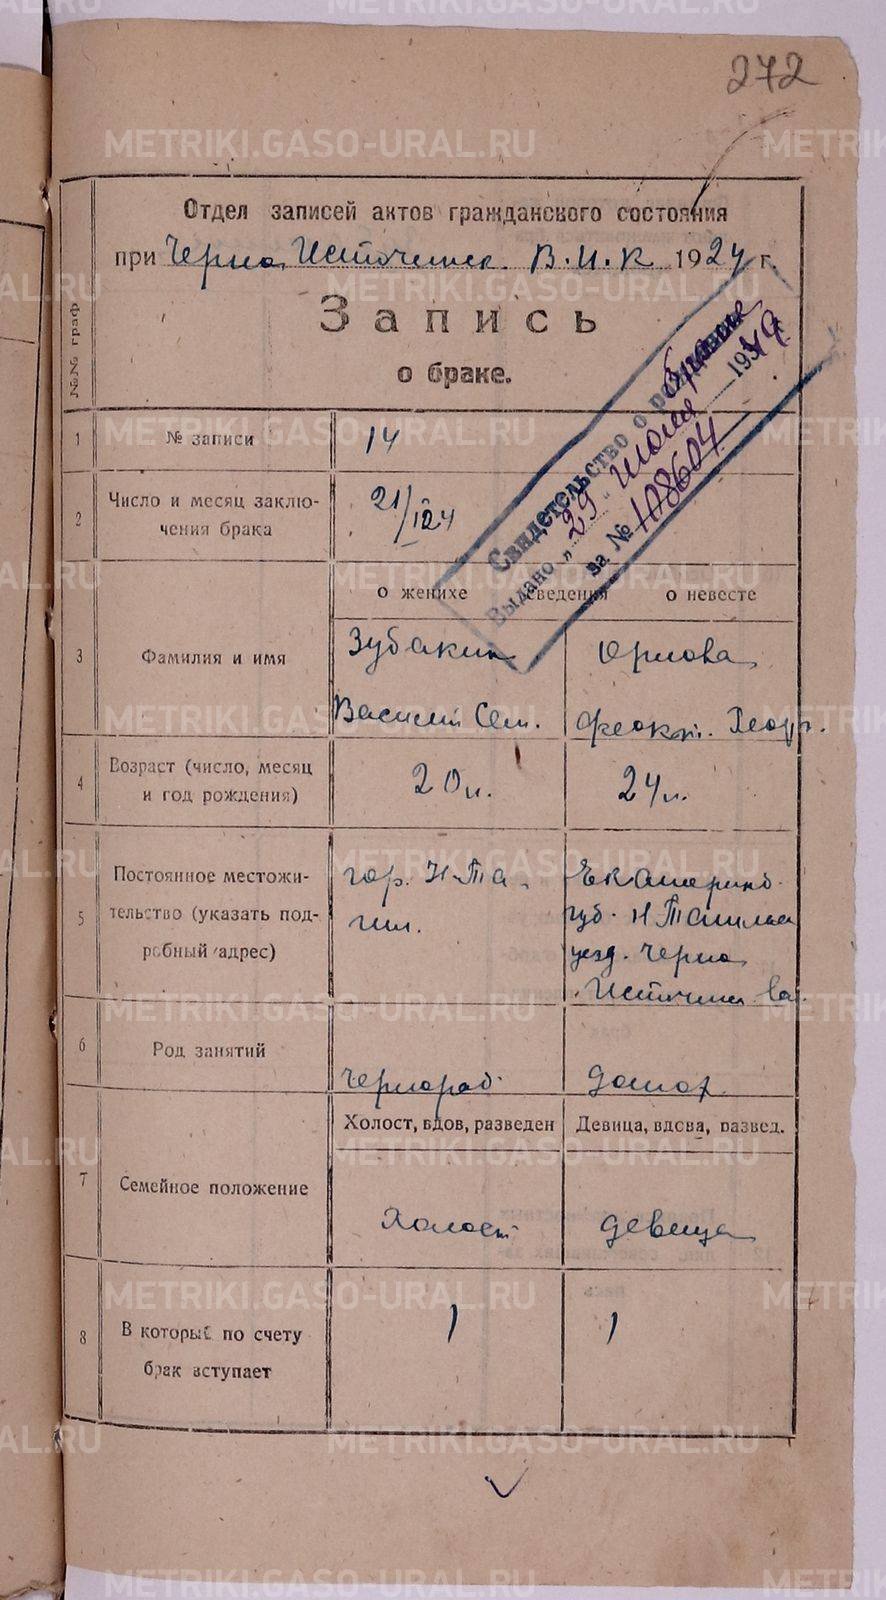 272
Отдел записей актов гражданского состояния
при Черно Источинск. В.И.К 1924 г.
№№ граф
Запись
о браке.
Свидетельство о браке
Выдано „29" Июля 1949
за № 108604
1 № записи 14
2 Число и месяц заклю-
чения брака 21/II 24
о женихе сведения о невесте
3 Фамилия и имя
Зубакин Орлова
Василий Сем. Феокт. Георг.
4 Возраст (число, месяц
и год рождения)
20 л. 24 л.
5 Постоянное местожи-
тельство (указать под-
робный адрес)
гор. Н-Та-
гил.
Екатеринб.
губ. Н Тагильск
уезд. Черно
Источинск вол.
6 Род занятий
Чернораб. домох.
Холост, вдов, разведен Девица, вдова, развед.
7 Семейное положение
Холост девица
8 В который по счету
брак вступает
1 1
METRIKI.GASO-URAL.RU